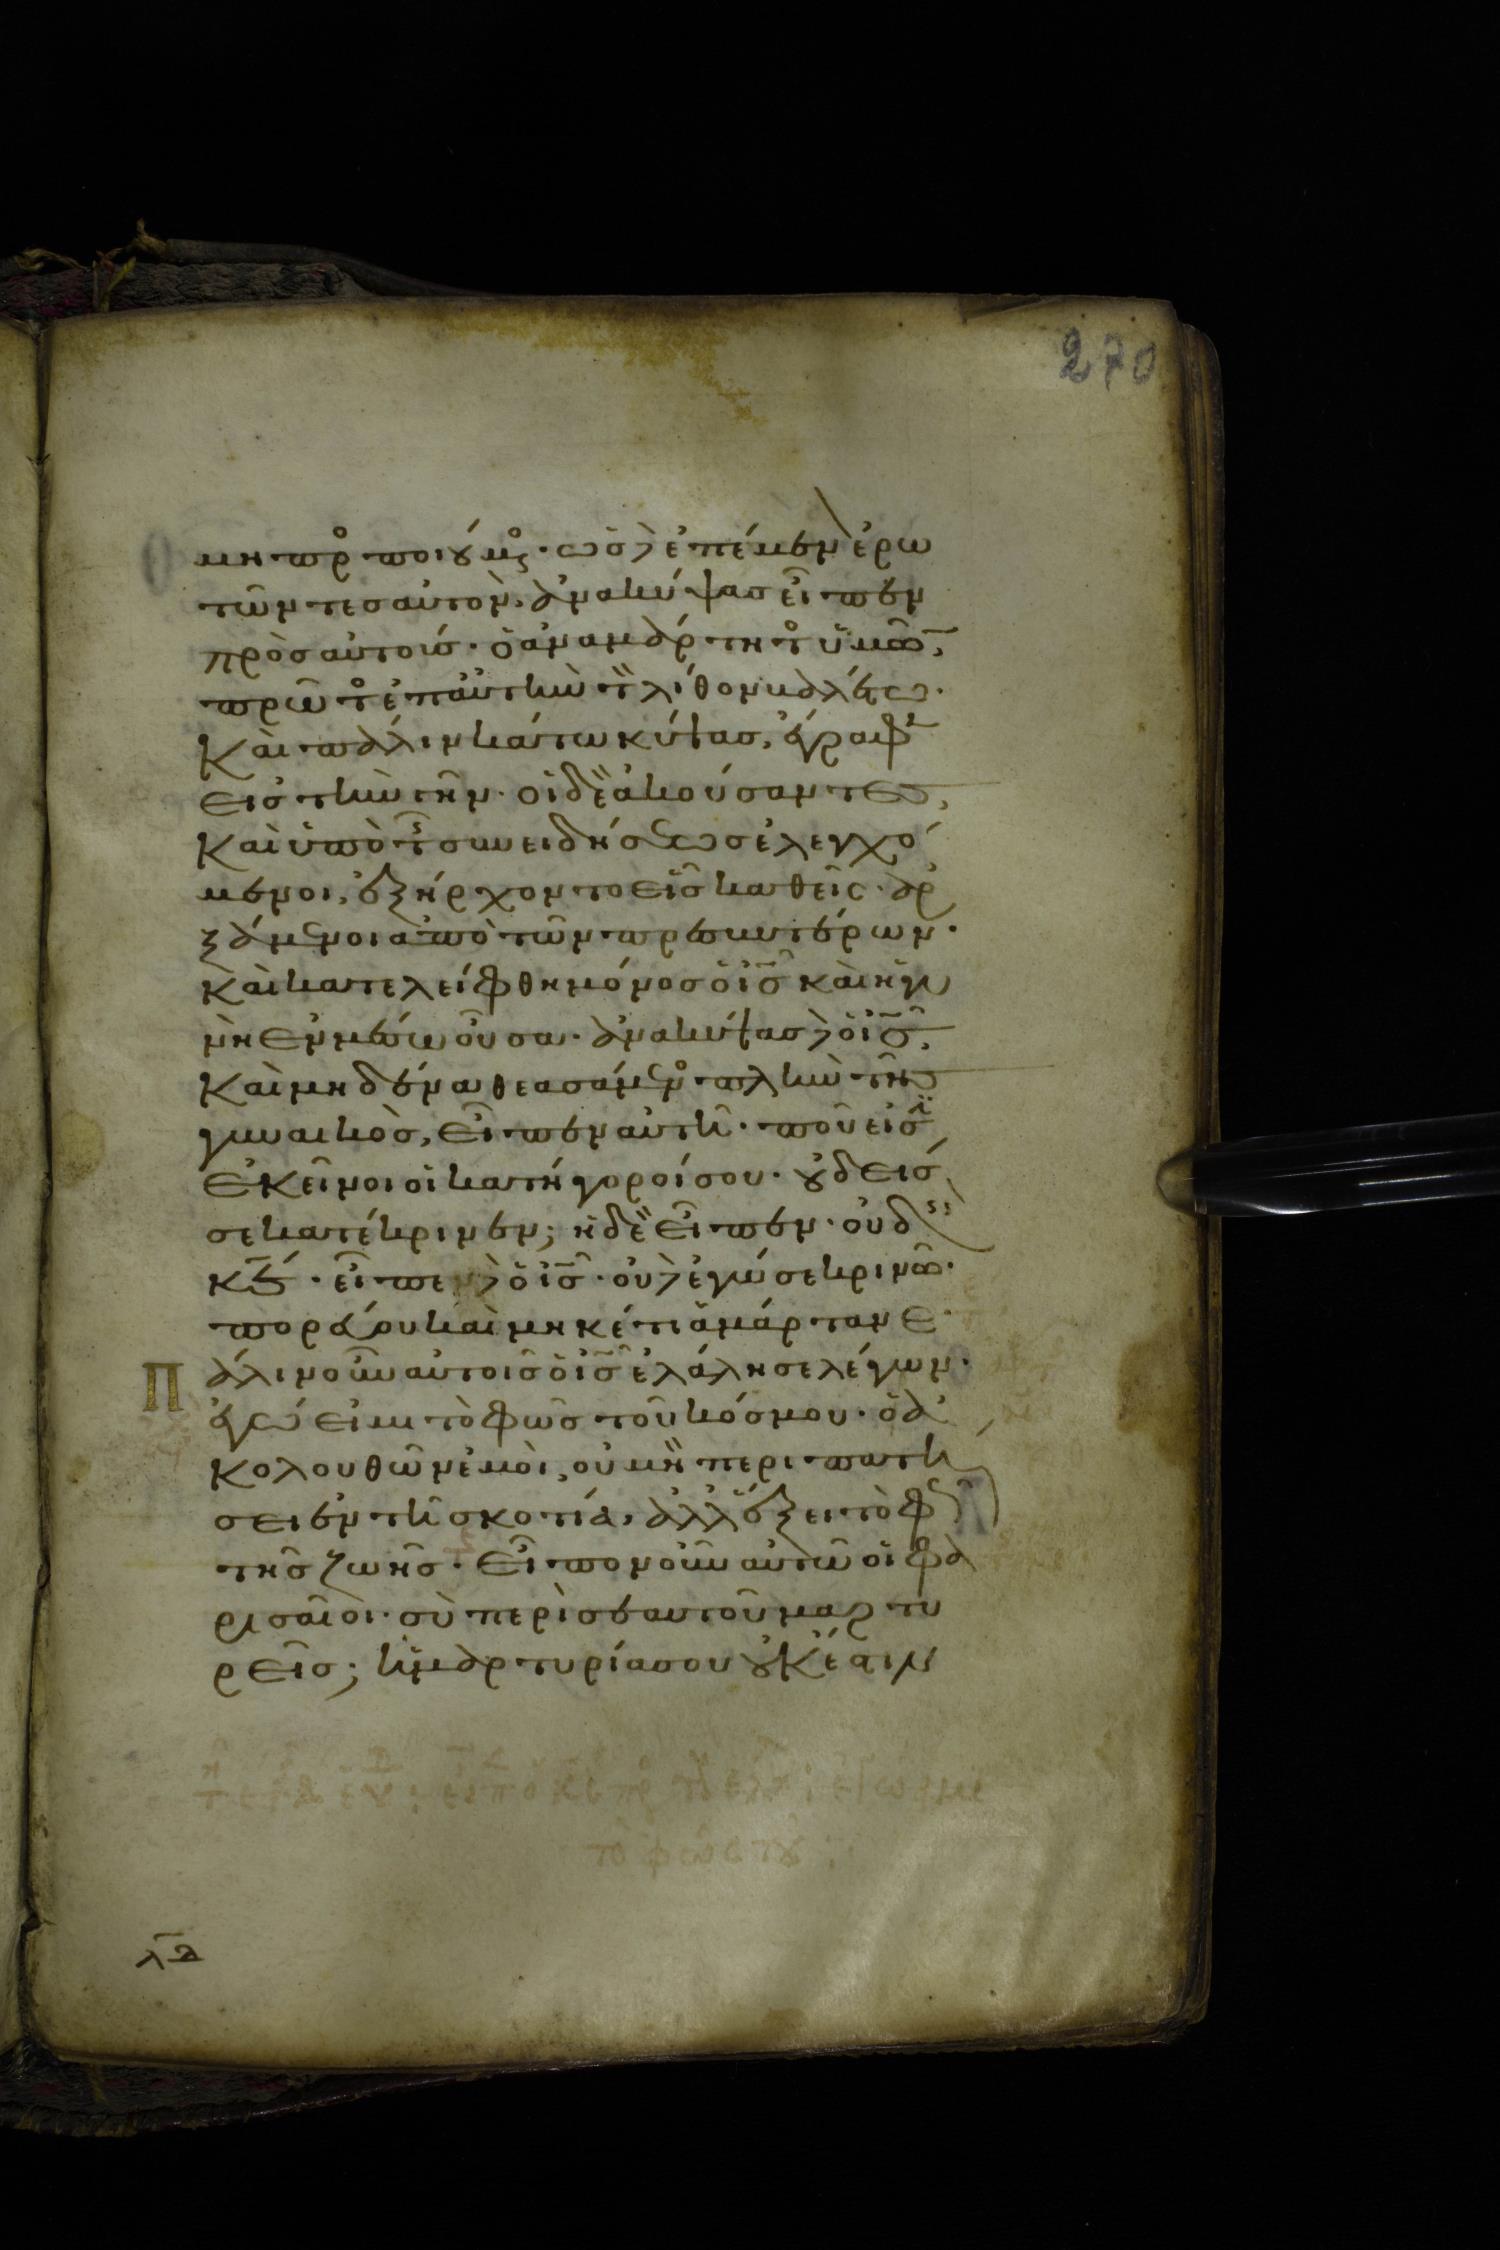 270
μη πρ ποιούμ · ὡς δὲ ἐπέμεν ἐρω
τῶντες αὐτον, ἀνακύψας εἶπεν
πρὸς αὐτούς · ὁ ἀναμάρτητ ὑμῶν,
πρῶτ ἐπ αὐτὴν τὸν λίθον βαλέτω ·
Καὶ πάλιν κάτω κύψας, ἔγραφ
εἰς τὴν γῆν · οἱ δὲ ἀκούσαντες,
Καὶ ὑπὸ τῆς συνειδήσεως ἐλεγχό
μενοι, ἐξήρχοντο εἷς καθεῖς · ἀρ
ξάμενοι ἀπὸ τῶν πρεσβυτέρων ·
Καὶ κατελείφθη μόνος ὁ ις καὶ ἡ γυ
νὴ ἐν μέσω οὖσα · ἀνακύψας δὲ ὁ ις,
Καὶ μηδένα θεασάμεν πλὴν τῆς
γυναικὸς, εἶπεν αὐτῆ · ποῦ εἰσὶν
ἐκεῖνοι οἱ κατήγοροί σου · οὐδείς
σε κατέκρινεν; ἡ δὲ εἶπεν · οὐδεὶς
κε · εἶπε δὲ ὁ ις · οὐδὲ ἐγώ σε κρινῶ ·
πορεύου καὶ μηκέτι ἁμάρτανε ·
Πάλιν οὖν αὐτοῖς ὁ ις ἐλάλησε λέγων ·
ἐγώ εἰμι τὸ φῶς τοῦ κόσμου · ὁ ἀ
κολουθῶν ἐμοὶ, οὐ μὴ περιπατή
σει ἐν τῆ σκοτία, ἀλλ ἕξει τὸ φῶς
τῆς ζωῆς · εἶπον οὖν αὐτῶ οἱ φα
ρισαῖοι · σὺ περὶ σεαυτοῦ μαρτυ
ρεῖς; ἡ μαρτυρία σου οὐκ ἔστιν
τὸ φῶς τοῦ
λδ